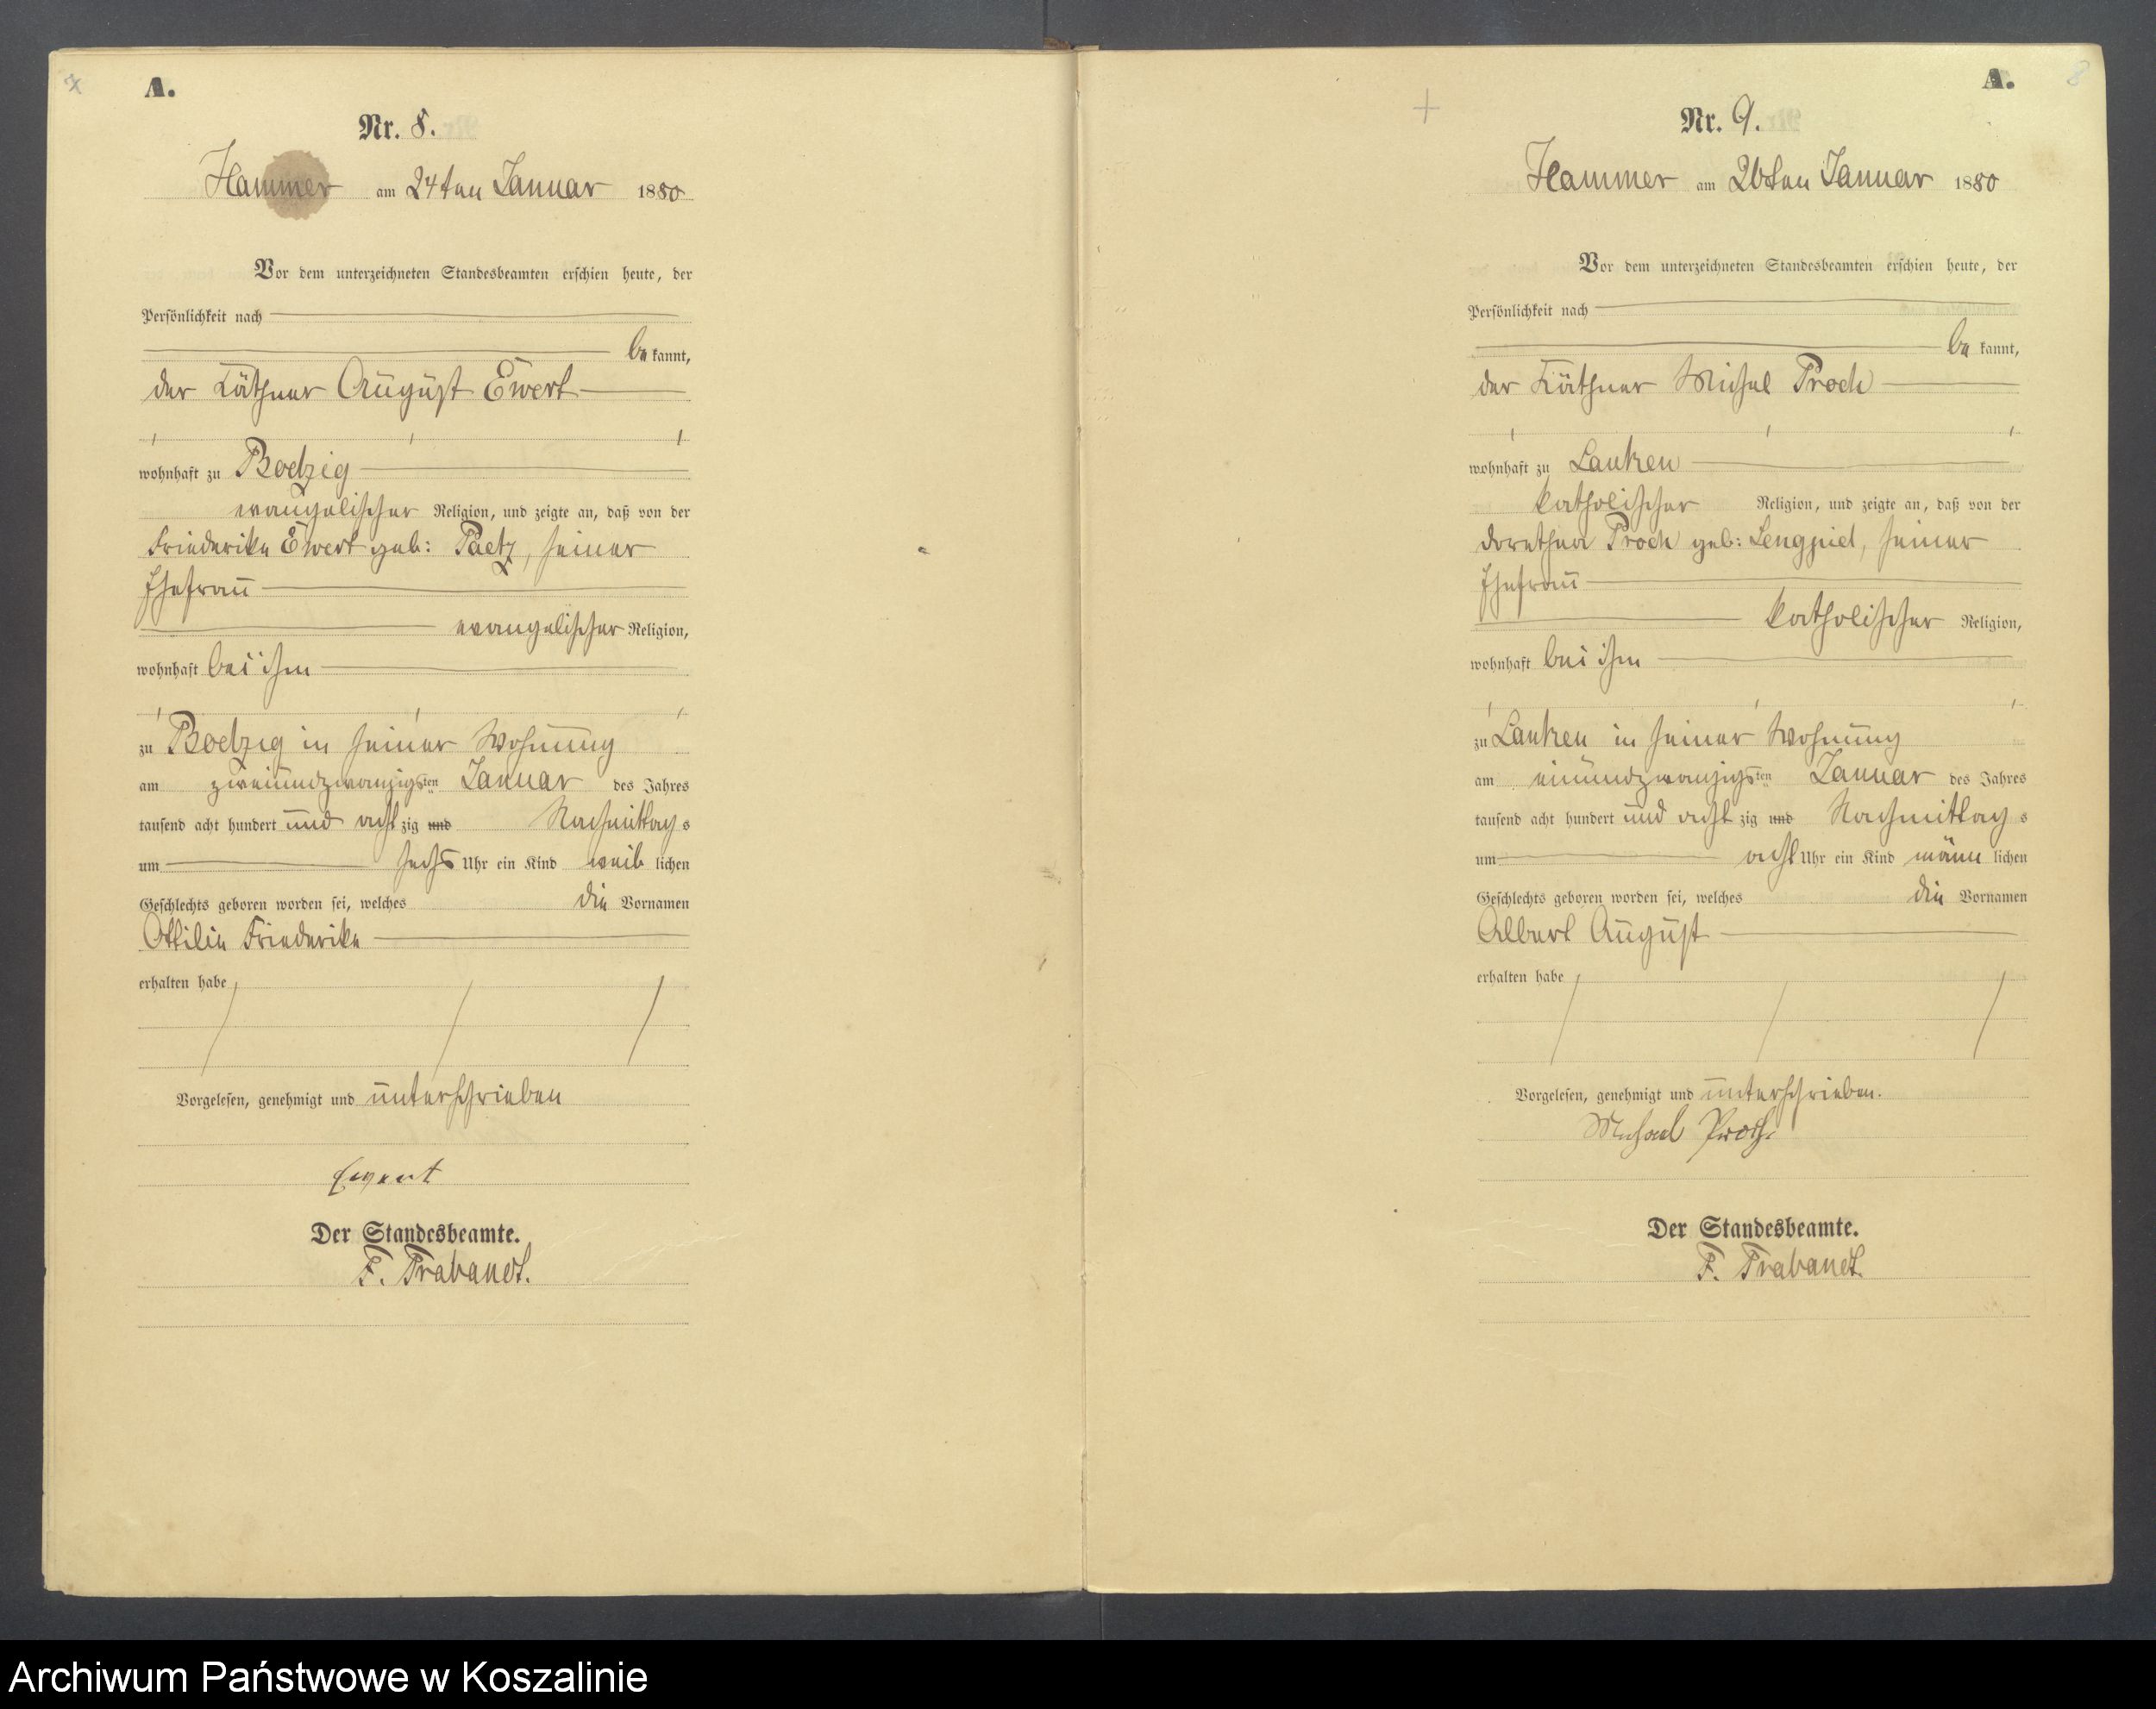 7
A.
Nr. 8.
Hammer am 24ten Januar 1880
Vor dem unterzeichneten Standesbeamten erschien heute, der
Persönlichkeit nach
be kannt,
der Käthner August Ewert
wohnhaft zu Boetzig
evangelischer Religion, und zeigte an, daß von der
Friederike Ewert geb: Paetz, seiner
Ehefrau
evangelischer Religion,
wohnhaft bei ihm
zu Boetzig in seiner Wohnung
am zweiundzwanzigsten Januar des Jahres
tausend acht hundert und acht zig und Nachmittag s
um sechs Uhr ein Kind weib lichen
Geschlechts geboren worden sei, welches die Vornamen
Ottilie Friederike
erhalten habe
Vorgelesen, genehmigt und unterschrieben
Ewert
Der Standesbeamte.
F. Trabandt.
A.
8
Nr. 9.
Hammer am 26ten Januar 1880
Vor dem unterzeichneten Standesbeamten erschien heute, der
Persönlichkeit nach
be kannt,
der Käthner Michel Proch
wohnhaft zu Lanken
katholischer Religion, und zeigte an, daß von der
Dorothea Proch geb: Lengpiel, seiner
Ehefrau
katholischer Religion,
wohnhaft bei ihm
zu Lanken in seiner Wohnung
am einundzwanzigsten Januar des Jahres
tausend acht hundert und acht zig und Nachmittag s
um acht Uhr ein Kind männ lichen
Geschlechts geboren worden sei, welches die Vornamen
Albert August
erhalten habe
Vorgelesen, genehmigt und unterschrieben.
Michael Proch.
Der Standesbeamte.
F. Trabandt.
Archiwum Państwowe w Koszalinie